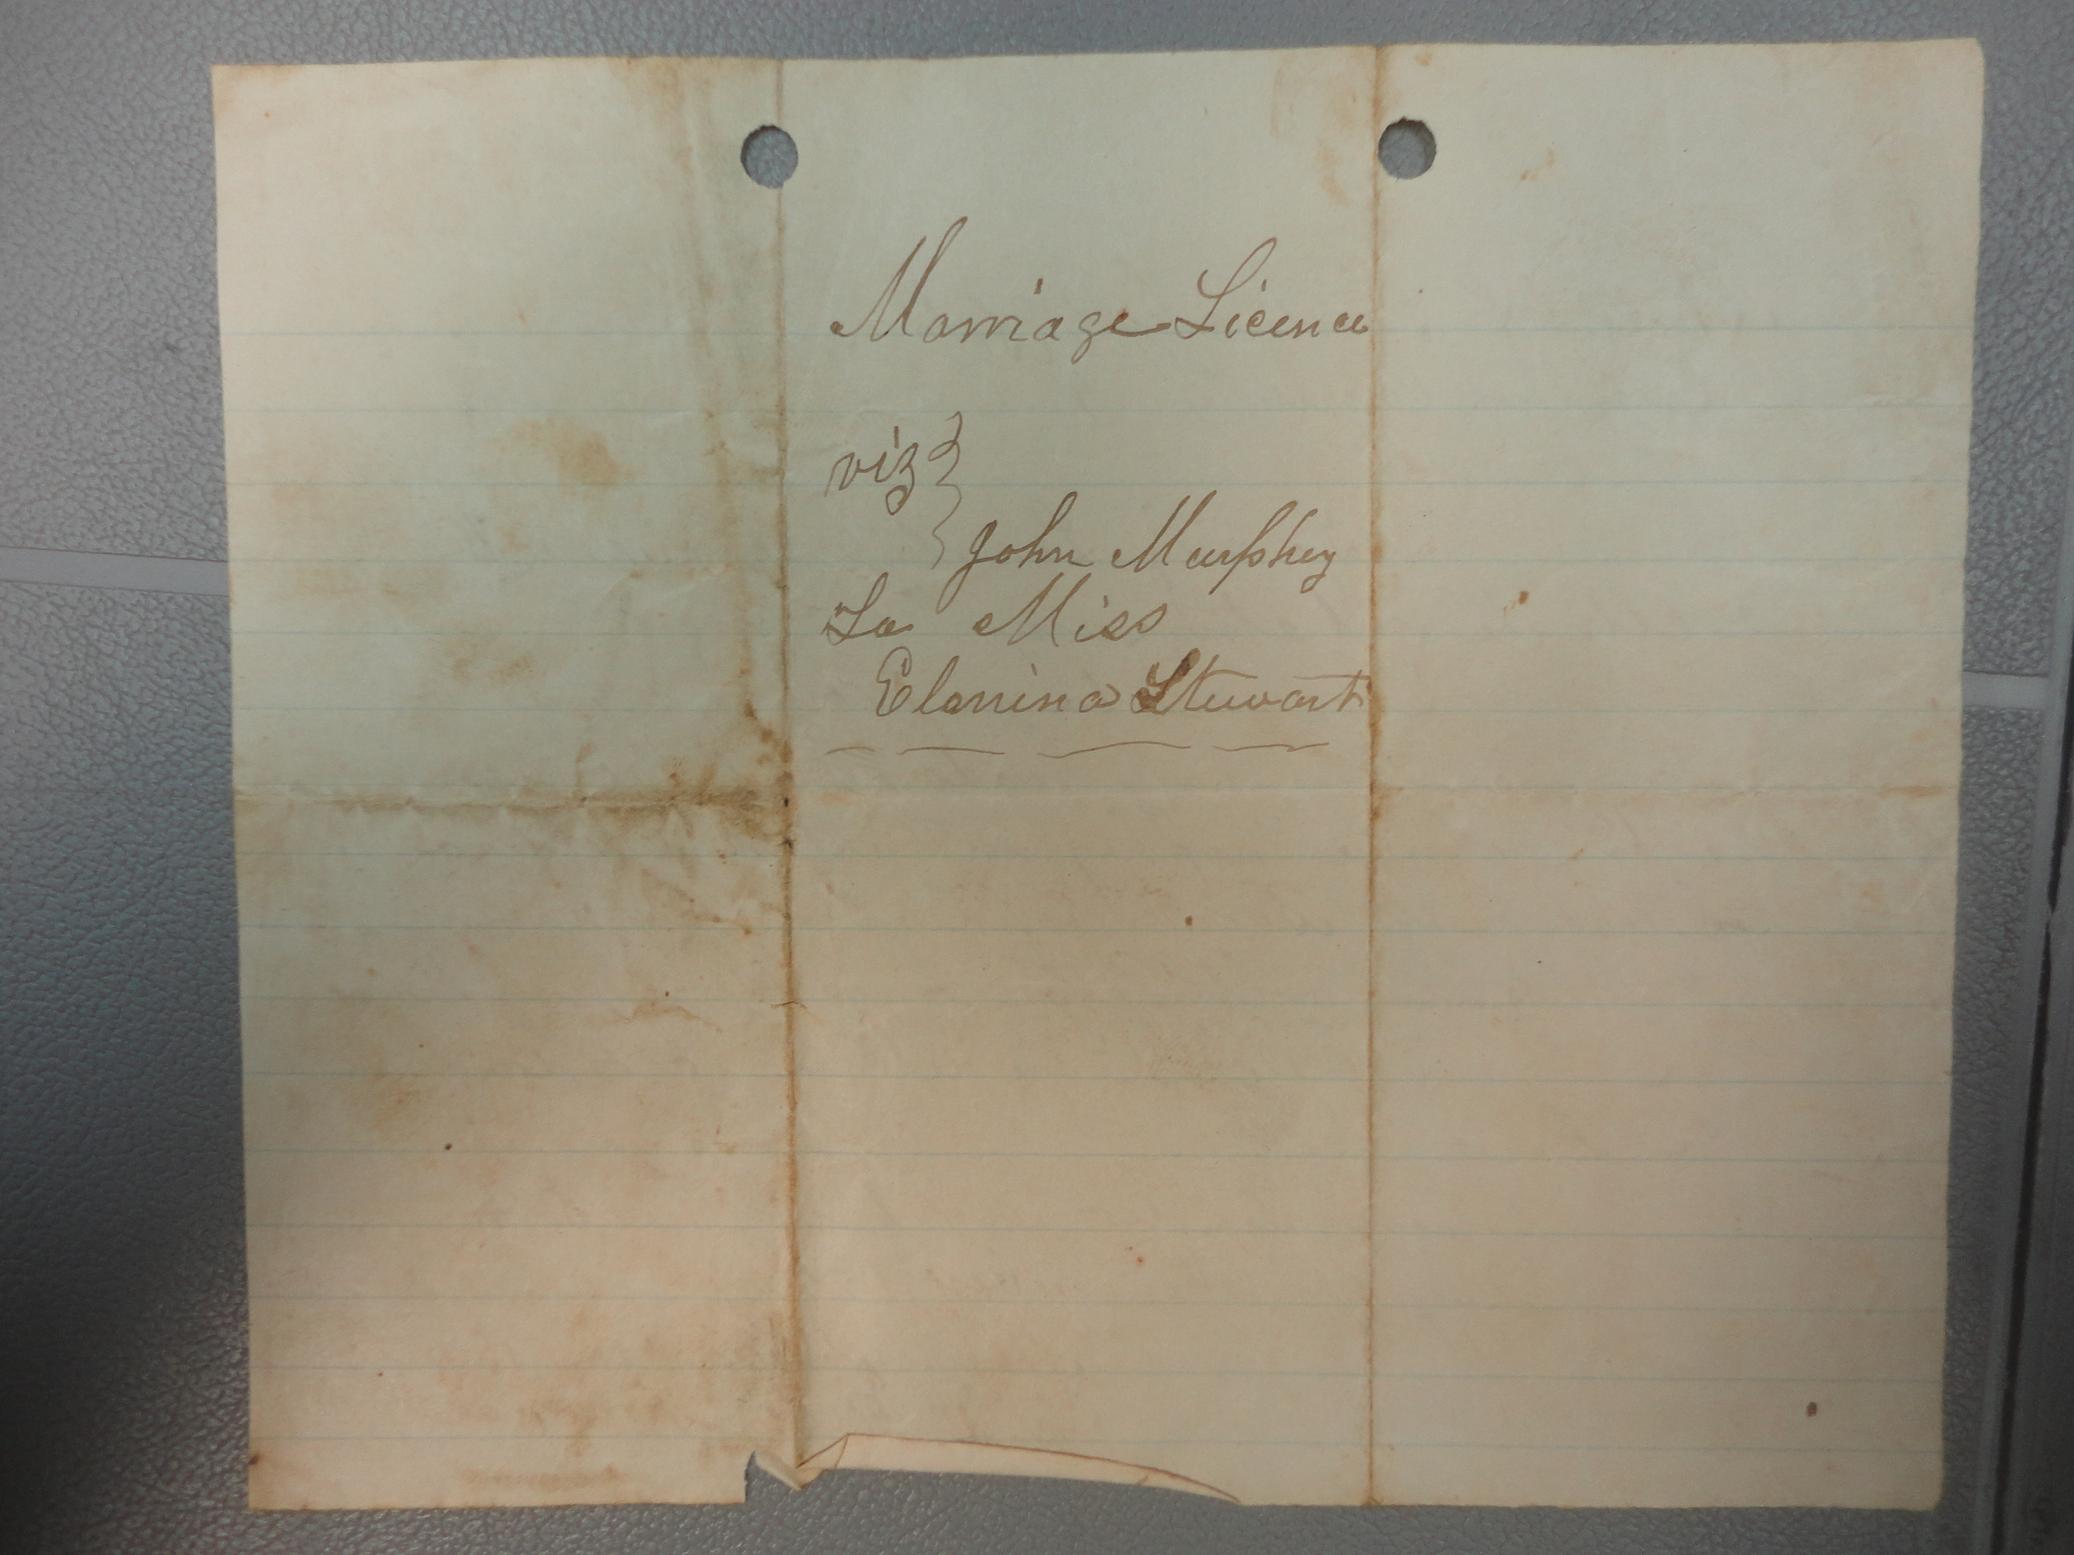 Marriage Licence
viz }
John Murphey
To Miss
Elonina Stewart